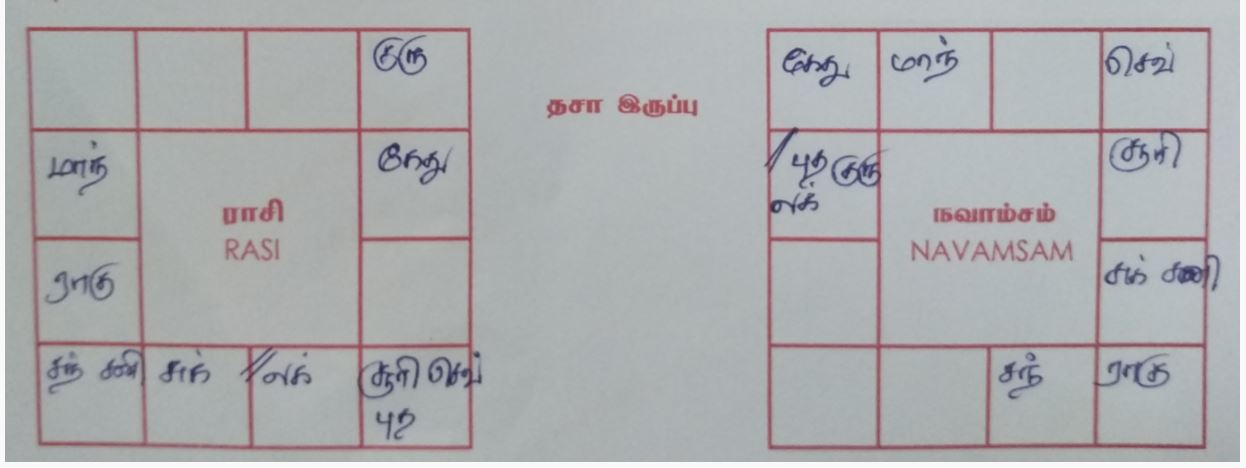 குரு
மாந்
கேது
ராசி
RASI
ராகு
சந் சனி
சுக்
// லக்
சூரி செவ்
புத
தசா இருப்பு
கேது
மாந்
செவ்
/ புத குரு
லக்
சூரி
நவாம்சம்
NAVAMSAM
சுக் சனி
சந்
ராகு